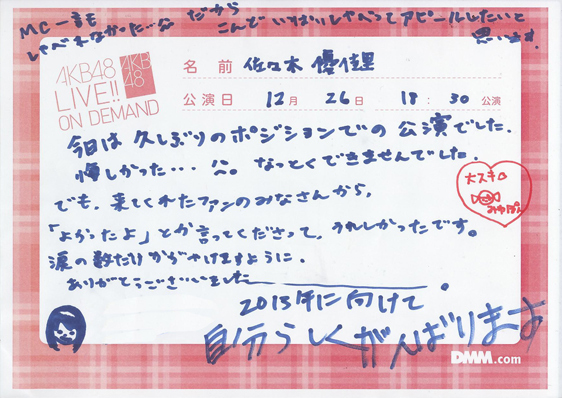 MC一言も
しゃべれなかった…
だから
こんど いっぱいしゃべってアピールしたいと
思います。
AKB48
LIVE!!
ON DEMAND
AKB
48
名 前 佐々木 優佳里
公演日 12月 26日 18:30 公演
今日は久しぶりのポジションでの公演でした。
悔しかった… なっとくできませんでした。
でも、来てくれたファンのみなさんから、
「よかったよ」とか言ってくださって、うれしかったです。
涙の数だけかがやけますように。
ありがとうございました
大スキ
2013年に向けて
自分らしくがんばります
DMM.com